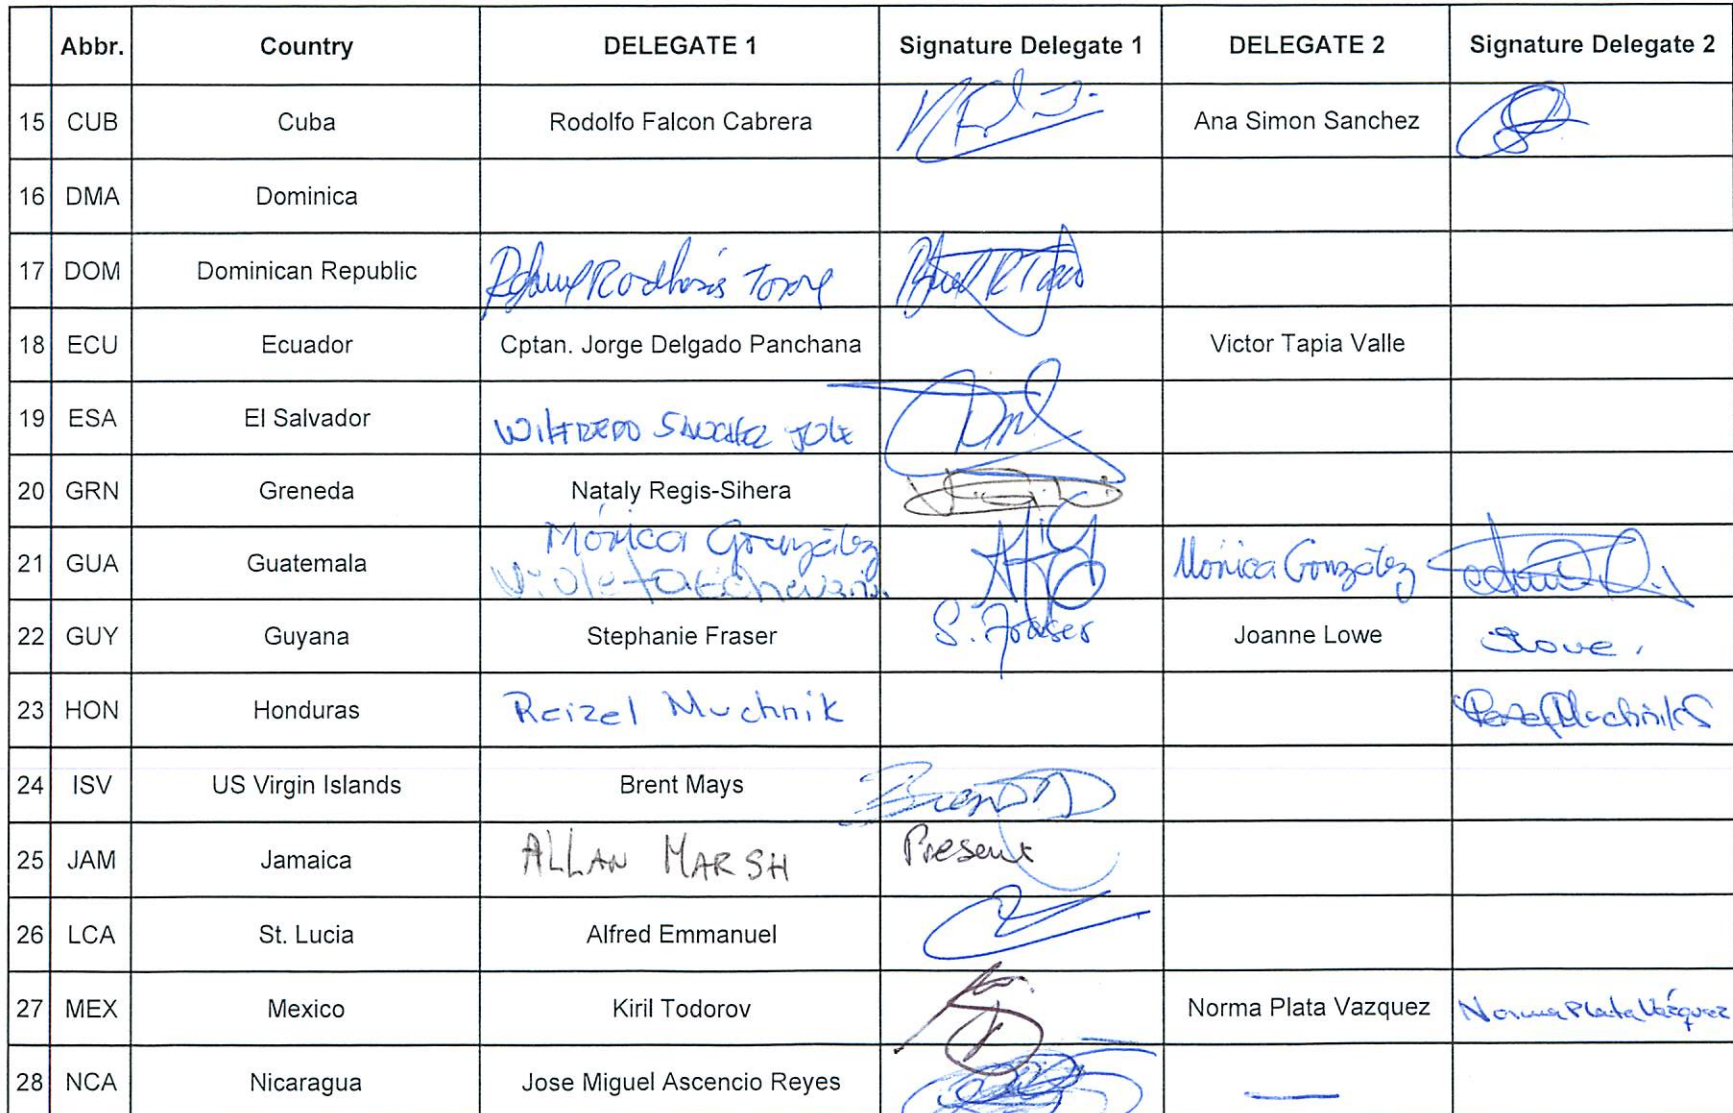 Abbr. Country DELEGATE 1 Signature Delegate 1 DELEGATE 2 Signature Delegate 2
15 CUB Cuba Rodolfo Falcon Cabrera Ana Simon Sanchez
16 DMA Dominica
17 DOM Dominican Republic
18 ECU Ecuador Cptan. Jorge Delgado Panchana Victor Tapia Valle
19 ESA El Salvador WILFREDO SANCHEZ
20 GRN Greneda Nataly Regis-Sihera
Mónica González
21 GUA Guatemala Violeta Echevarria Mónica González
22 GUY Guyana Stephanie Fraser S. Fraser Joanne Lowe Lowe.
23 HON Honduras Reizel Muchnik
24 ISV US Virgin Islands Brent Mays
25 JAM Jamaica ALLAN MARSH Present
26 LCA St. Lucia Alfred Emmanuel
27 MEX Mexico Kiril Todorov Norma Plata Vazquez Norma Plata Vázquez
28 NCA Nicaragua Jose Miguel Ascencio Reyes —